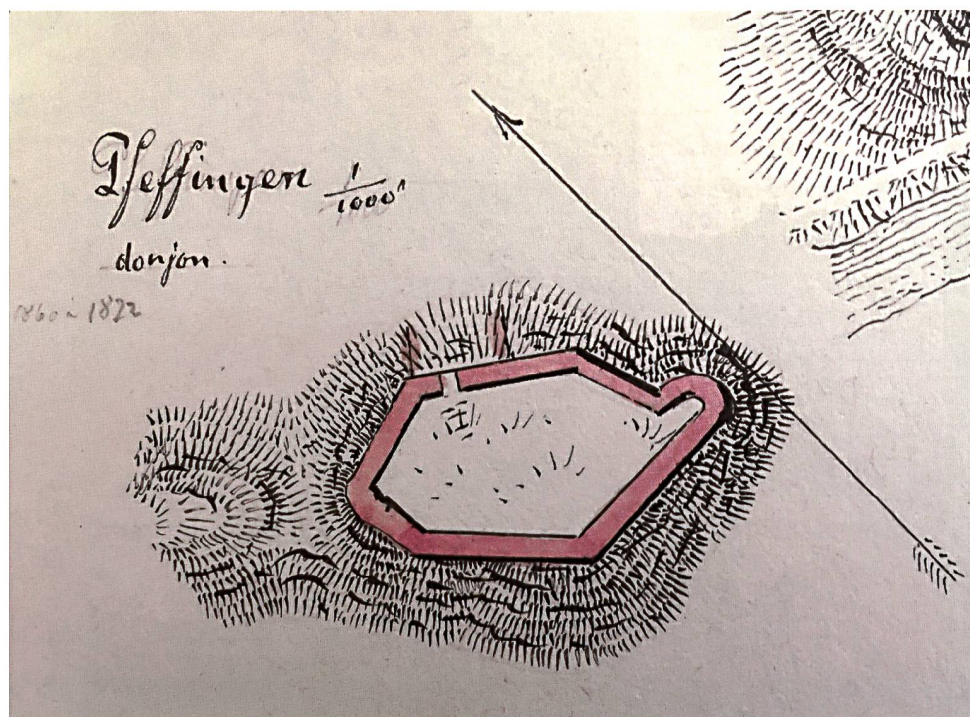 Pfeffingen 1/1000
donjon.
à 1822